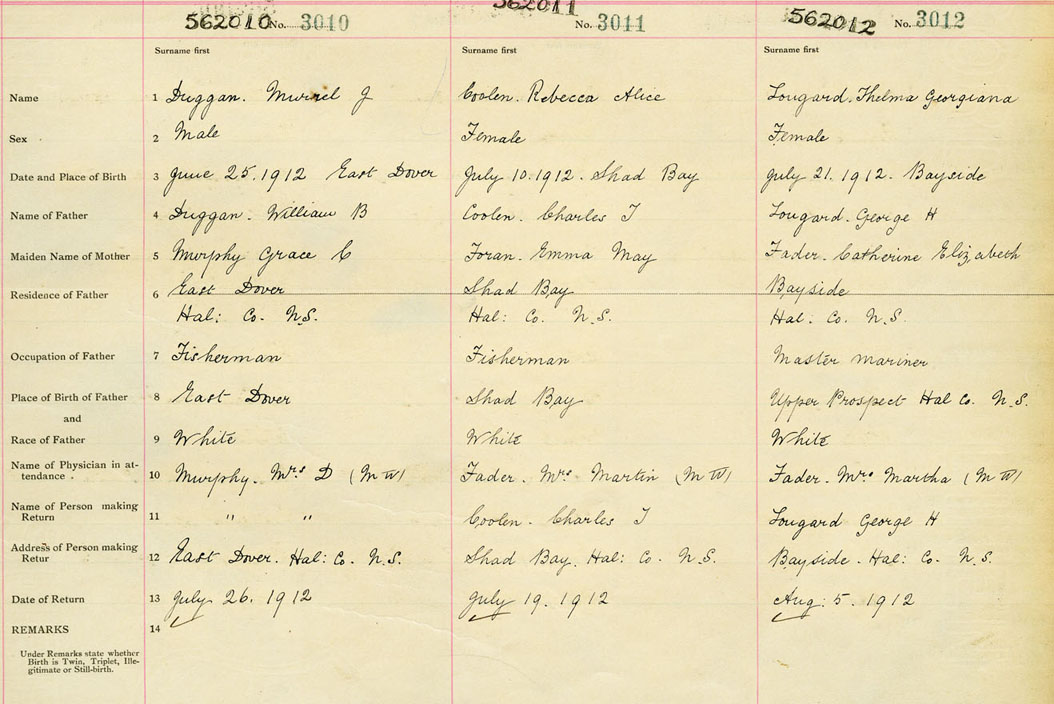 562010 No. 3010 562011 No. 3011 562012 No. 3012
Surname first Surname first Surname first
Name 1 Duggan. Muriel J Coolen. Rebecca Alice Lougard. Thelma Georgiana
Sex 2 Male Female Female
Date and Place of Birth 3 June 25. 1912 East Dover July 10. 1912. Shad Bay July 21. 1912. Bayside
Name of Father 4 Duggan. William B Coolen. Charles T Lougard. George H
Maiden Name of Mother 5 Murphy Grace C Foran. Emma May Fader. Catherine Elizabeth
Residence of Father 6 East Dover Shad Bay Bayside
Hal: Co. N.S. Hal: Co. N.S. Hal. Co. N.S.
Occupation of Father 7 Fisherman Fisherman Master mariner
Place of Birth of Father 8 East Dover Shad Bay Upper Prospect Hal Co. N.S.
and
Race of Father 9 White White White
Name of Physician in at-
tendance . 10 Murphy. Mrs D (MW) Fader. Mrs Martin (MW) Fader. Mrs Martha (MW)
Name of Person making
Return 11 " " Coolen. Charles T Lougard George H
Address of Person making
Retur 12 East Dover. Hal: Co. N.S. Shad Bay. Hal: Co. N.S. Bayside. Hal: Co. N.S.
Date of Return 13 July 26. 1912 July 19. 1912 Aug: 5. 1912
REMARKS 14
Under Remarks state whether
Birth is Twin, Triplet, Ille-
gitimate or Still-birth.